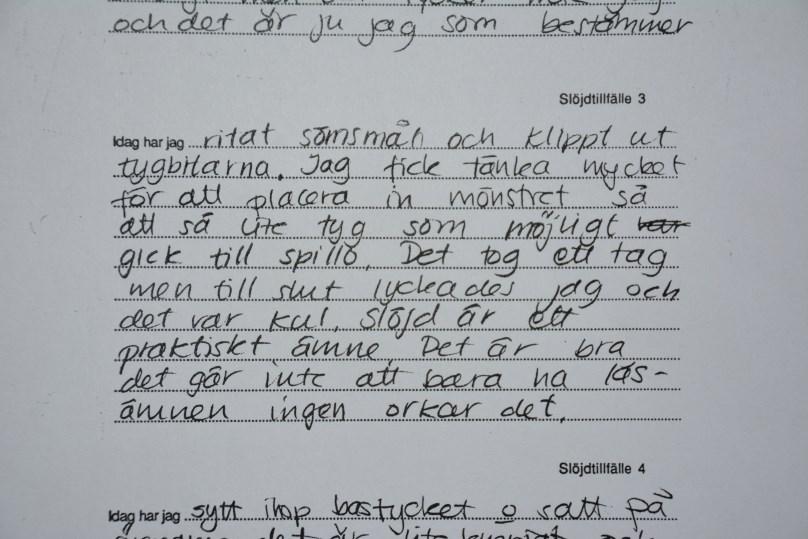 och det är ju jag som bestämmer
Slöjdtillfälle 3
Idag har jag ritat sömsmån och klippt ut
tygbitarna. Jag fick tänka mycket
för att placera in mönstret så
att så lite tyg som möjligt var
gick till spillo. Det tog ett tag
men till slut lyckades jag och
det var kul. Slöjd är ett
praktiskt ämne. Det är bra
det går inte att bara ha läs-
ämnen ingen orkar det.
Slöjdtillfälle 4
Idag har jag sytt ihop bastycket o satt på
det är lite